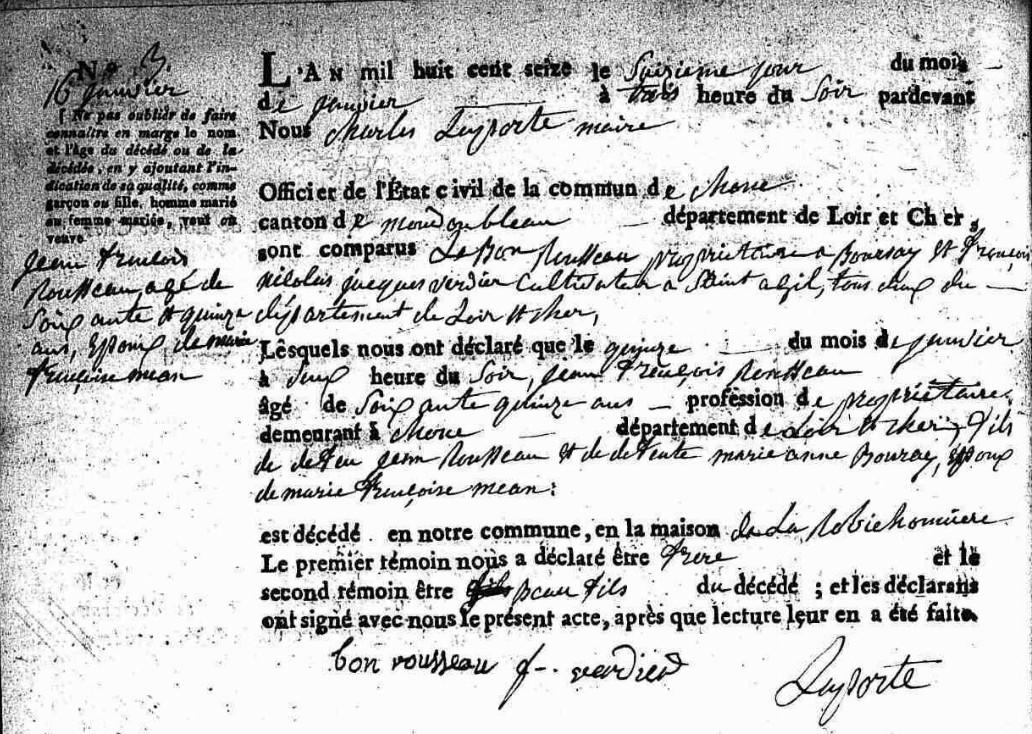 N.º 3.
16 janvier
( Ne pas oublier de faire
connaître en marge le nom
et l'âge du décédé ou de la
décédée, en y ajoutant l'in-
dication de sa qualité, comme
garçon ou fille, homme marié
ou femme mariée, veuf ou
veuve.
jean françois
Rousseau agé de
Soix ante et quinze
ans, Epoux de marie
françoise mean
L'AN mil huit cent seize le Seizieme jour du mois
de janvier à trois heure du Soir pardevant
Nous charles Laporte maire
Officier de l'État civil de la commun de choue
canton de mondoubleau département de Loir et Cher,
sont comparus Le Bon Rousseau proprietaire a Boursay et françois
nicolas jacques verdier Cultivateur a Saint agil, tous deux du
département de Loir et cher,
Lesquels nous ont déclaré que le quinze du mois de janvier
à deux heure du Soir, jean françois Rousseau
âgé de Soix ante quinze ans profession de proprietaire
demeurant à choue département de Loir et cher, fils
de defeu jean Rousseau et de defeute marie anne Bouray, Epoux
de marie françoise mean :
est décédé en notre commune, en la maison de La Robichonniere
Le premier témoin nous a déclaré être frere et le
second témoin être Beau fils du décédé ; et les déclarans
ont signé avec nous le présent acte, après que lecture leur en a été faite.
bon rousseau f verdier Laporte